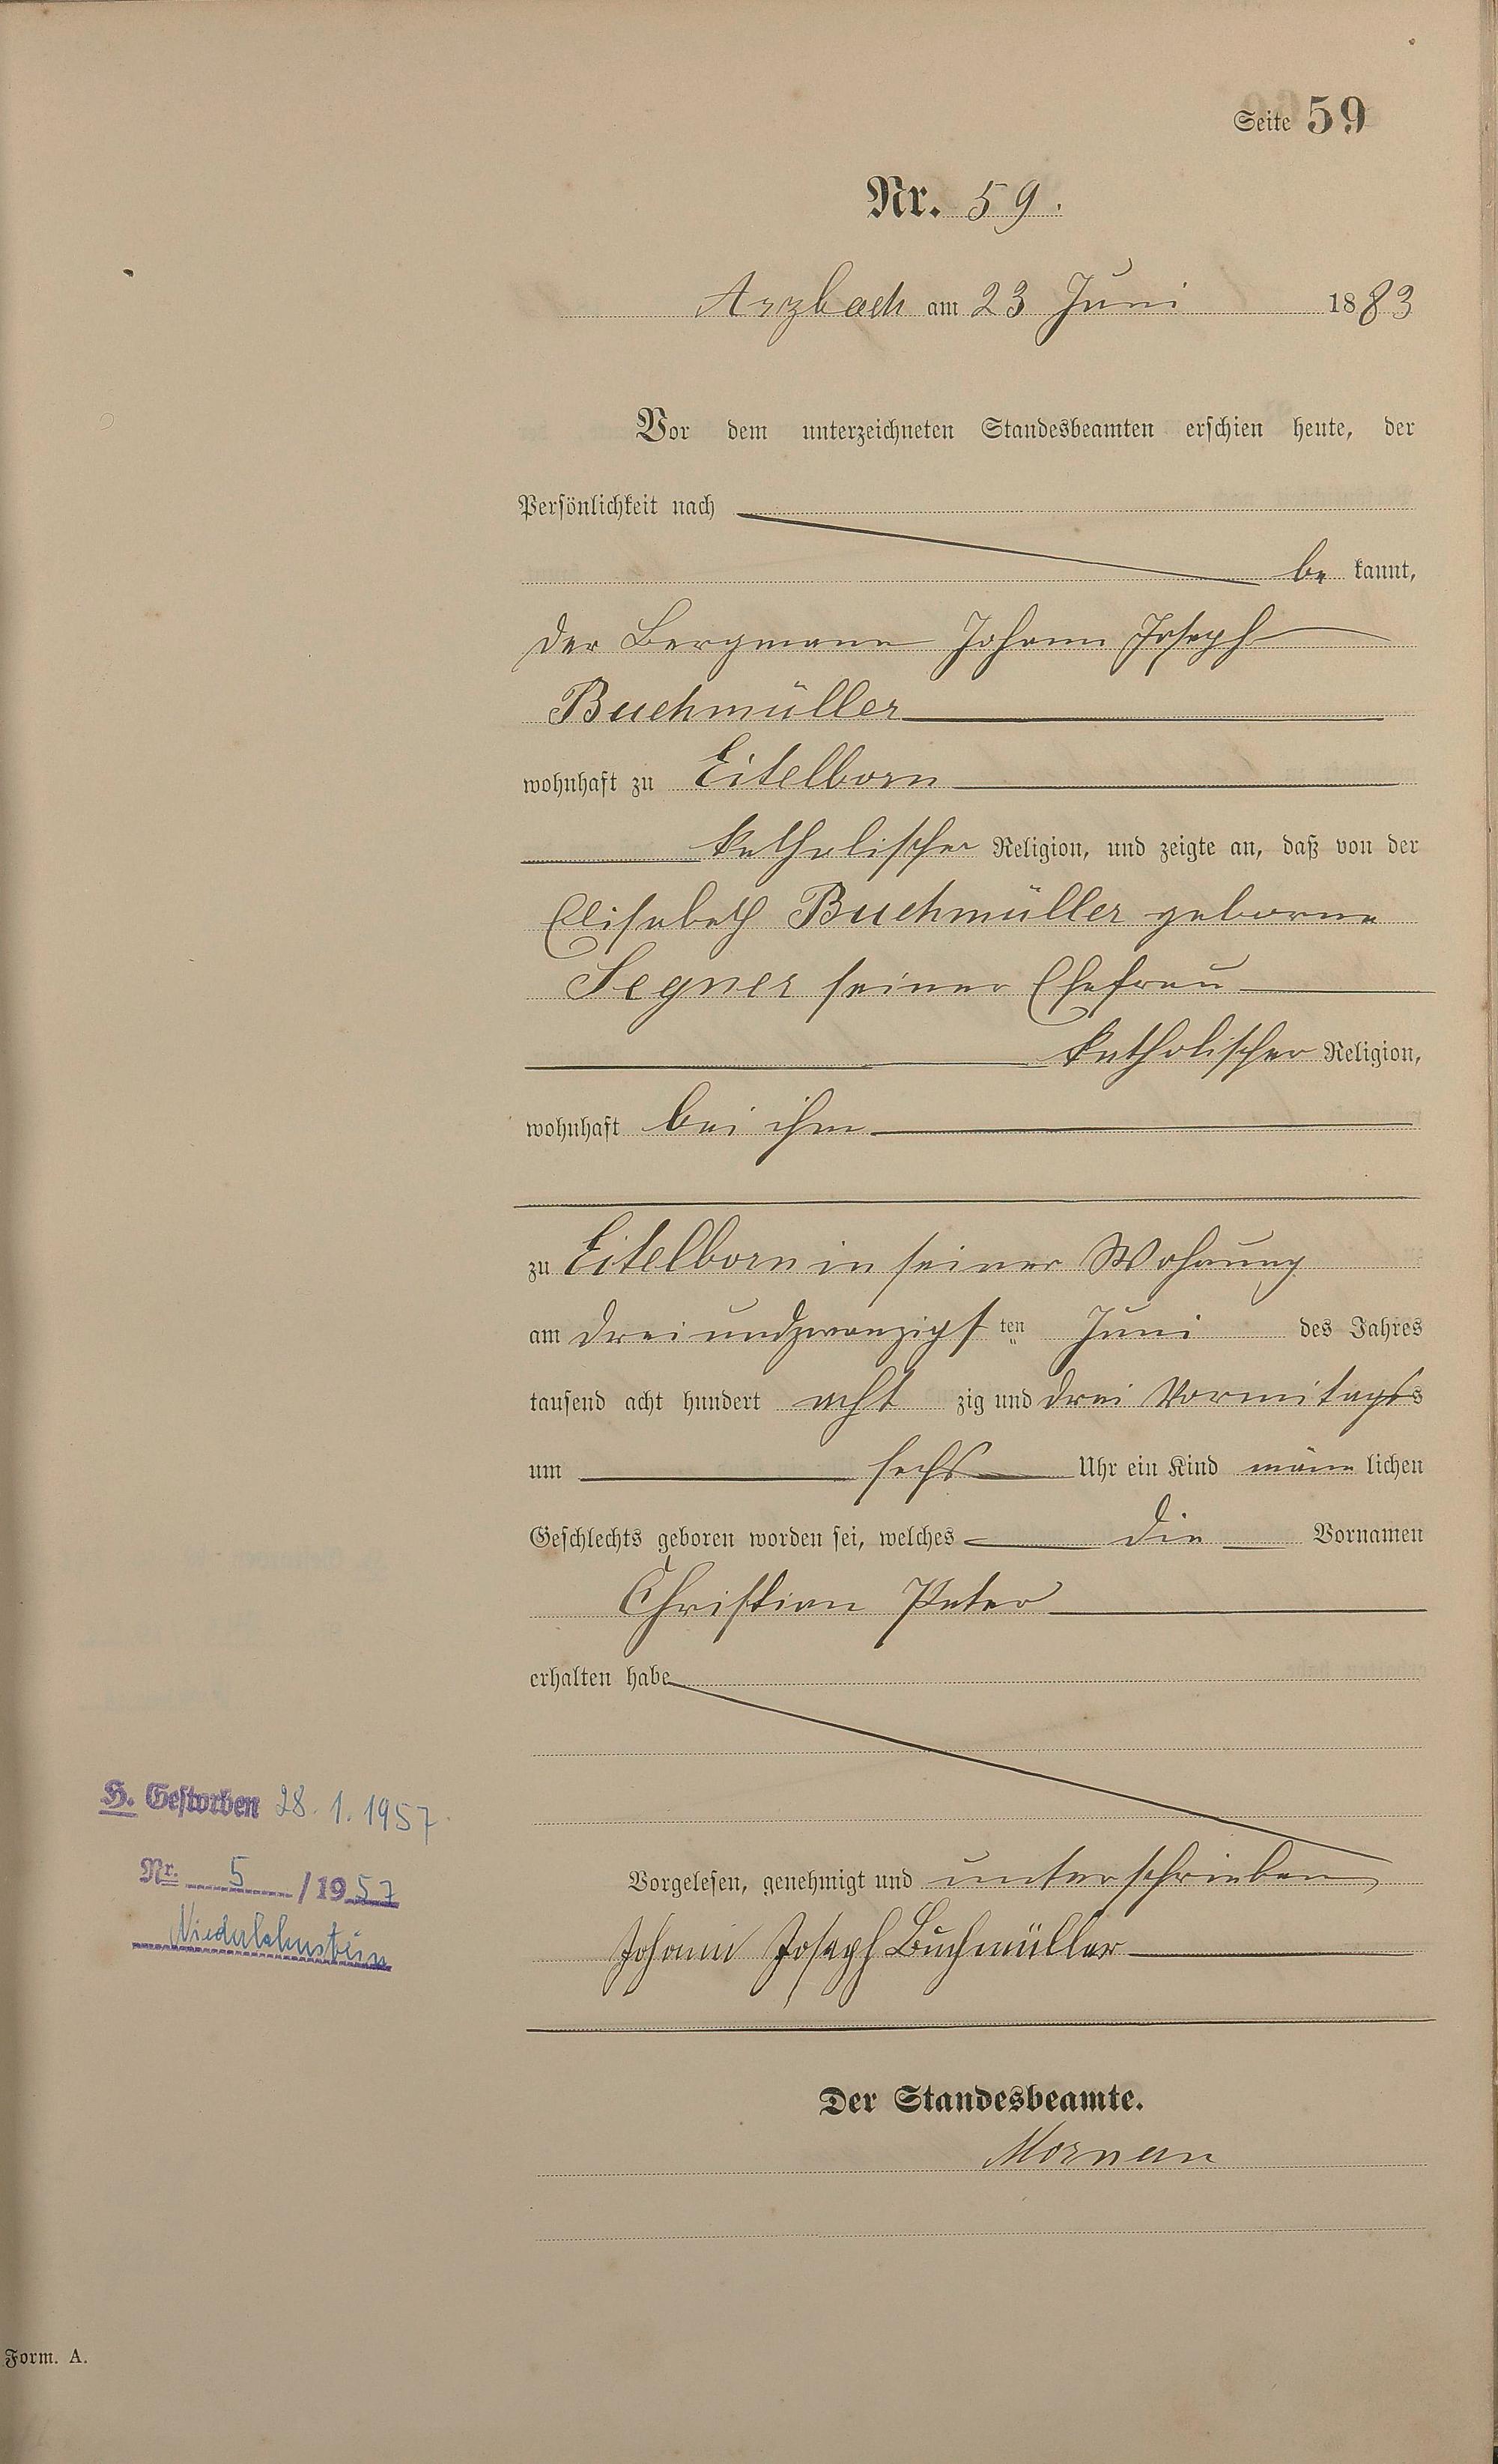 Seite 59
Nr. 59.
Arzbach am 23 Juni 1883
Vor dem unterzeichneten Standesbeamten erschien heute, der
Persönlichkeit nach
be kannt,
der Bergmann Johann Joseph
Buchmüller
wohnhaft zu Eitelborn
katholischer Religion, und zeigte an, daß von der
Elisabeth Buchmüller geborne
Segner seiner Ehefrau
katholischer Religion,
wohnhaft bei ihm
zu Eitelborn in seiner Wohnung
am dreiundzwanzigsten Juni des Jahres
tausend acht hundert acht zig und drei Vormitags
um sechs Uhr ein Kind männ lichen
Geschlechts geboren worden sei, welches die Vornamen
Christian Peter
erhalten habe
Vorgelesen, genehmigt und unterschrieben
Johann Joseph Buchmüller
Der Standesbeamte.
H. Gestorben 28.1.1957
Nr. 5 / 1957
Niederlahnstein
Form. A.